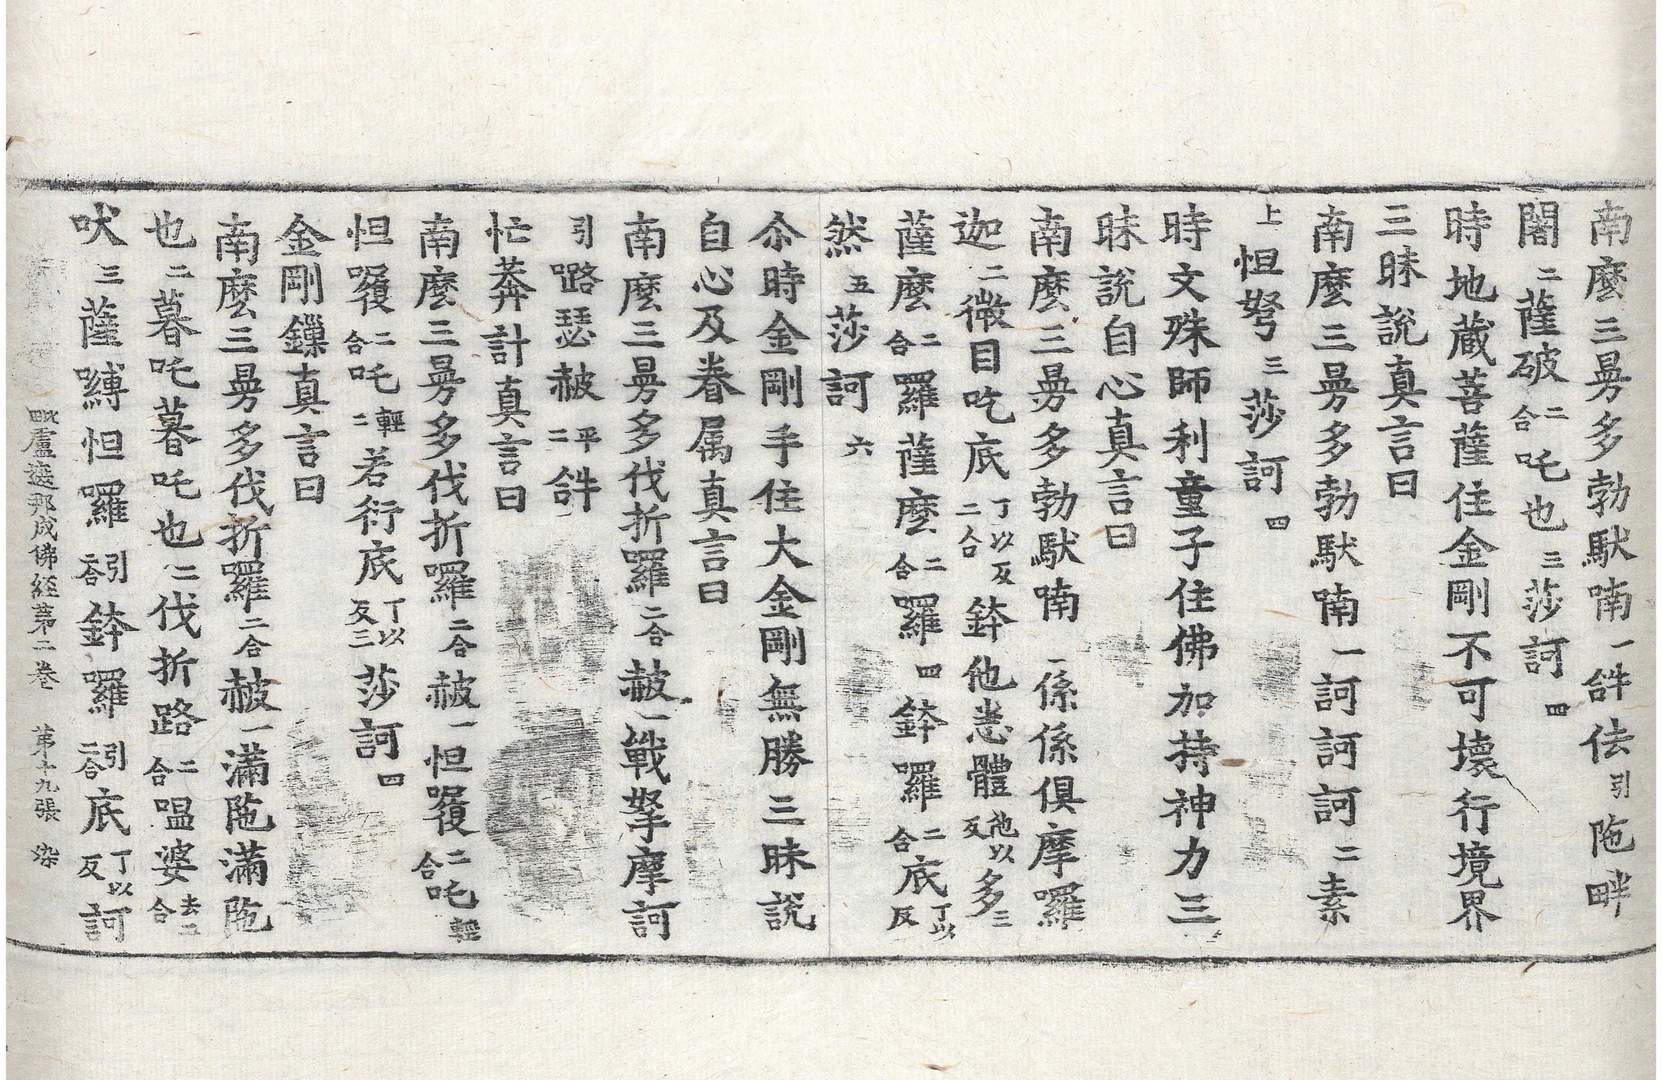 南麼三曼多勃馱喃一𤙖佉引陁畔
闍二薩破二合吒也三莎訶四
時地蔵菩薩住金剛不可壞行境界
三昧說真言曰
南麼三曼多勃馱喃一訶訶訶二素
上怛弩三莎訶四
時文殊師利童子住佛加持神力三
昧說自心真言曰
南麼三曼多勃馱喃一係係俱摩囉
迦二微目吃底丁以反二合鉢他悉體他以反多三
薩麼二合羅薩麼二合羅四鉢囉二合底丁以反
然五莎訶六
尒時金剛手住大金剛無勝三昧說
自心及眷属真言曰
南麼三曼多伐折囉二合赧一戰拏摩訶
引㗨瑟赧平二𤙖
忙莽計真言曰
南麼三曼多伐折囉二合赧一怛㘑二合吒輕
怛㘑二合吒輕二若衍底丁以反三莎訶四
金剛鏁真言曰
南麼三曼多伐折囉二合赧一滿陁滿陁
也二暮吒暮吒也二伐折路二合嗢婆去二合
吠三薩嚩怛囉引二合鉢囉引二合底丁以反訶
毗盧遮那成佛經第二卷 第十九張 染